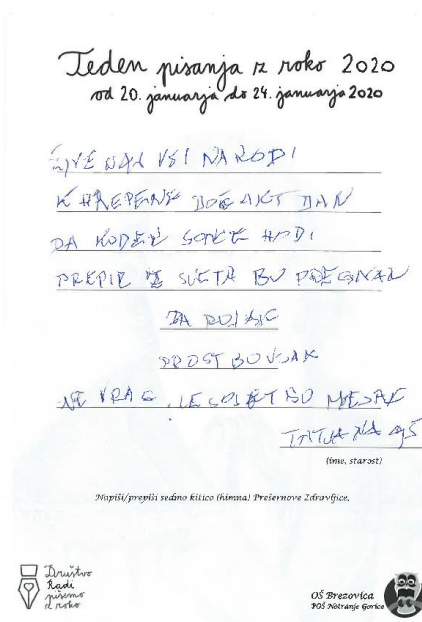 Teden pisanja z roko 2020
od 20. januarja do 24. januarja 2020
ŽIVE NAJ VSI NARODI
K HREPENE DOČAKT DAN
DA KODER SONCE HODI
PREPIR Z SVETA BO PREGNAN
DA ROJAK
PROST BO VSAK
NE VRAG, LE SOSET BO MEJAK
TATJANA
(ime, starost)
Napiši/prepiši sedmo kitico (himna) Prešernove Zdravljice.
Društvo
Radi
pišemo
z roko
OŠ Brezovica
POŠ Notranje Gorice